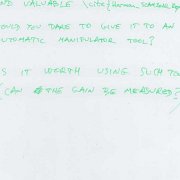 ND VALUABLE \cite{Human
OULD YOU DARE TO GIVE IT TO AN
AUTOMATIC MANIPULATOR TOOL?
S IT WORTH USING SUCH TO
CAN THE GAIN BE MEASURED?